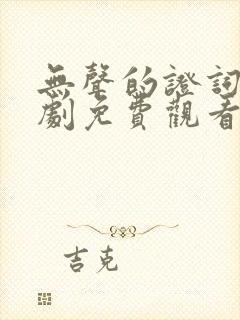 無聲的證詞
劇免費觀看
吉克